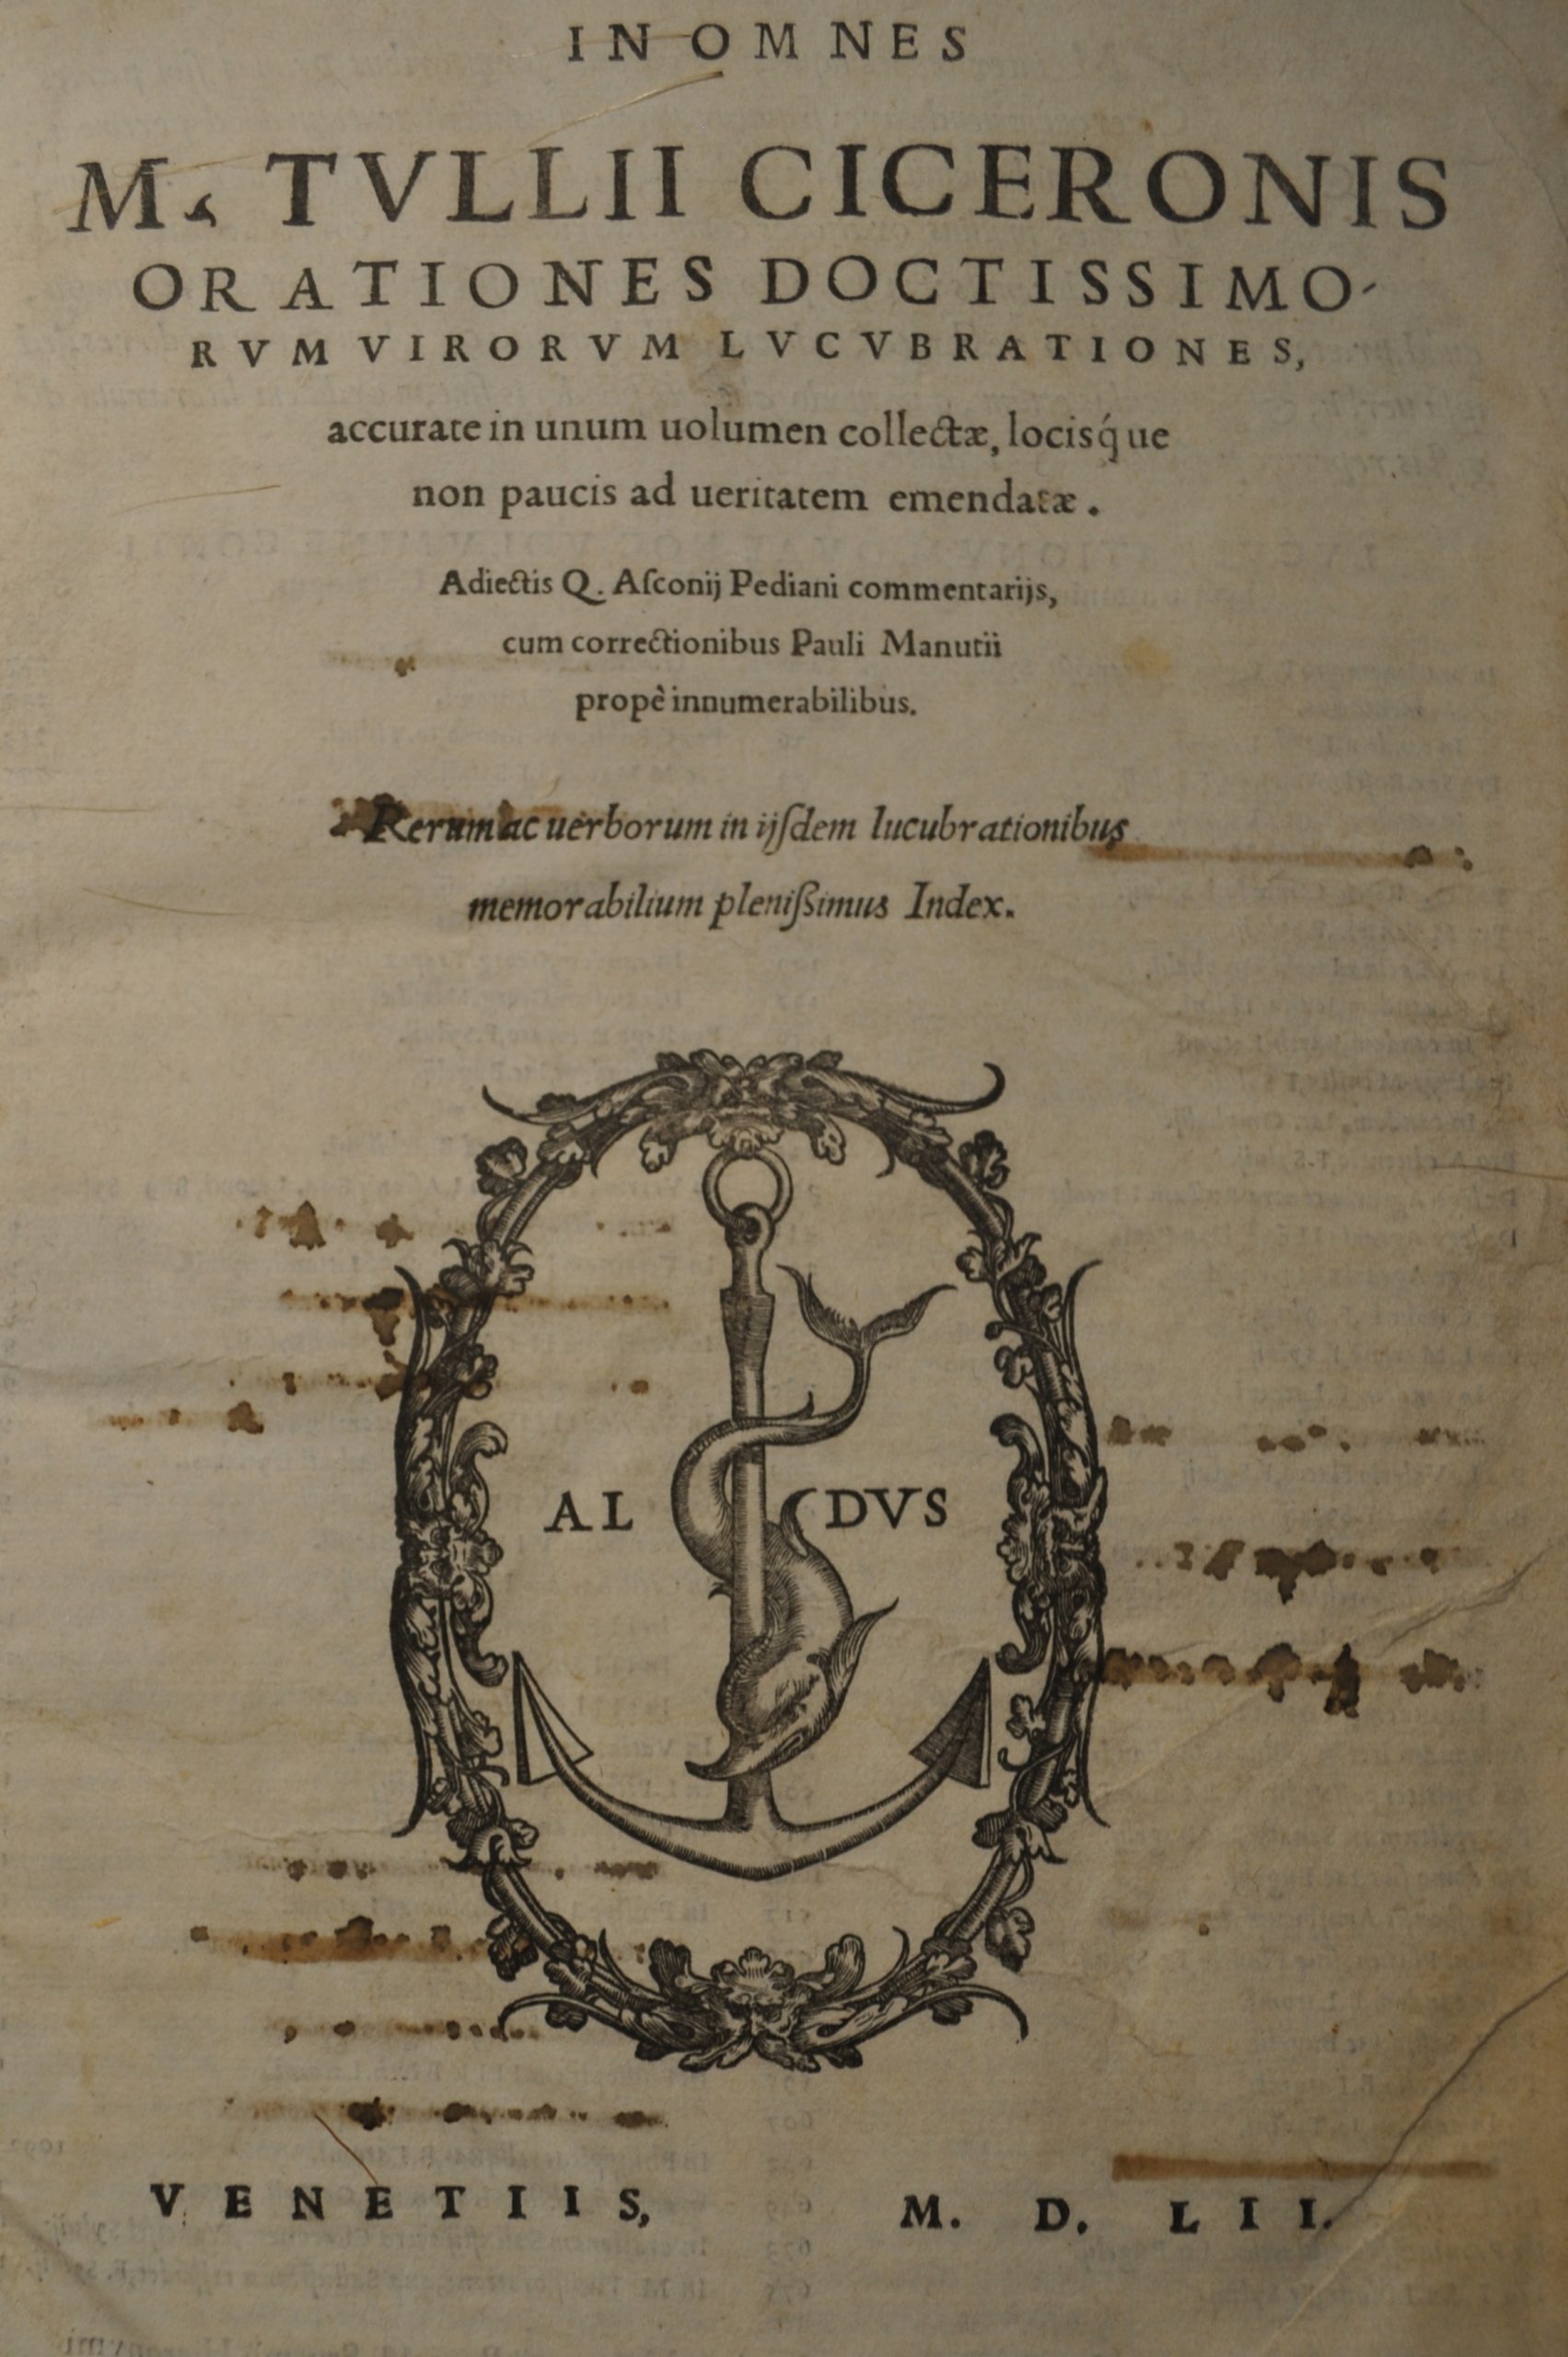 IN OMNES
M. TVLLII CICERONIS
ORATIONES DOCTISSIMO-
RVM VIRORVM LVCVBRATIONES,
accurate in unum uolumen collectæ, locisq́ue
non paucis ad ueritatem emendatæ.
Adiectis Q. Aſconij Pediani commentarijs,
cum correctionibus Pauli Manutii
propè innumerabilibus.
Rerum ac uerborum in ijſdem lucubrationibus
memorabilium pleniſsimus Index.
AL DVS
VENETIIS, M. D. LII.